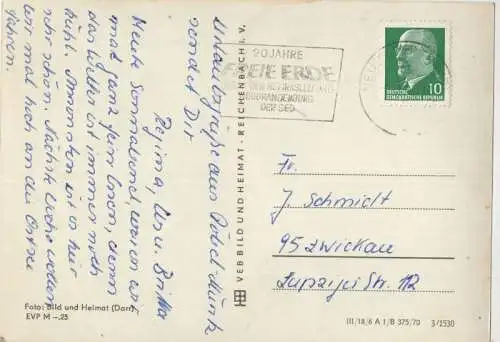 Urlaubsgrüße aus Röbel-Müritz
sendet Dir
Regina, Uwe u. Britta
Heute Sonnabend, waren wir
mal ganz schön, denn
das Wetter ist immer noch
kühl. Ansonsten ist es hier
sehr schön. Nächste Woche wollen
wir mal hoch an die Ostsee
fahren.
Foto: Bild und Heimat (Darr)
EVP M –.25
VEB BILD UND HEIMAT · REICHENBACH i. V.
20 JAHRE
FREIE ERDE
NEUBRANDENBURG
DER SED
DEUTSCHE
DEMOKRATISCHE REPUBLIK
10
Fr.
J. Schmidt
95 Zwickau
Leipziger Str. 112
III/18/6 A 1/B 375/70 3/1530